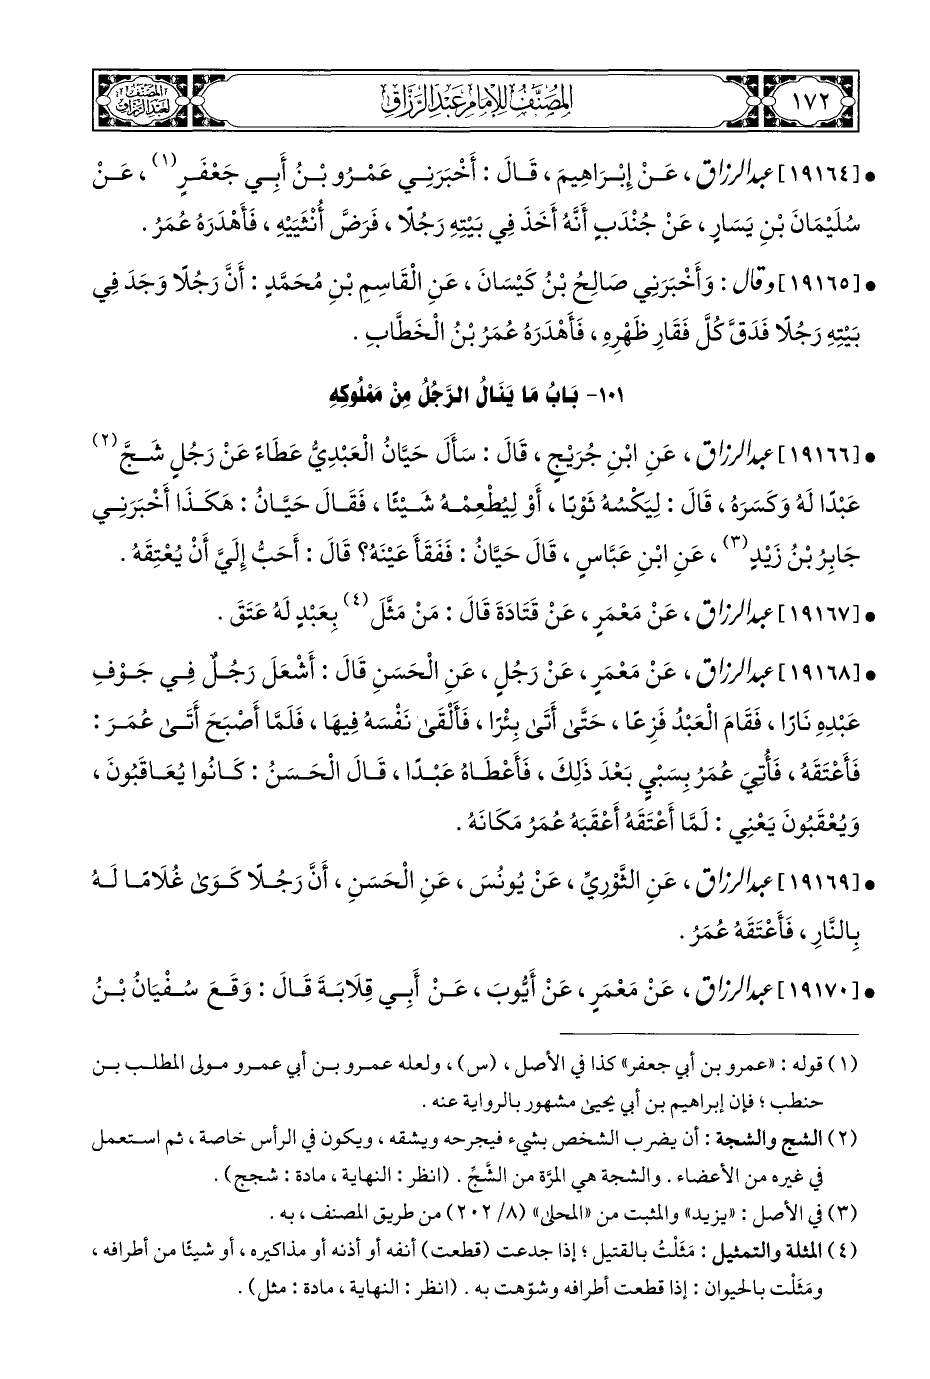 ١٧٢
المصنف للإمام عبد الرزاق
المصنف
لعبد الرزاق
• [١٩١٦٤] عبد الرزاق ، عَنْ إِبْرَاهِيمَ ، قَالَ : أَخْبَرَنِي عَمْرُو بْنُ أَبِي جَعْفَرٍ (١) ، عَنْ
سُلَيْمَانَ بْنِ يَسَارٍ ، عَنْ جُنْدَبٍ أَنَّهُ أَخَذَ فِي بَيْتِهِ رَجُلًا ، فَرَضَّ أُنْثَيَيْهِ ، فَأَهْدَرَهُ عُمَرُ .
• [١٩١٦٥] وقال : وَأَخْبَرَنِي صَالِحُ بْنُ كَيْسَانَ ، عَنِ الْقَاسِمِ بْنِ مُحَمَّدٍ : أَنَّ رَجُلًا وَجَدَ فِي
بَيْتِهِ رَجُلًا فَدَقَّ كُلَّ فَقَارِ ظَهْرِهِ ، فَأَهْدَرَهُ عُمَرُ بْنُ الْخَطَّابِ .
١٠١- بَابُ مَا يَنَالُ الرَّجُلُ مِنْ مَمْلُوكِهِ
• [١٩١٦٦] عبد الرزاق ، عَنِ ابْنِ جُرَيْجٍ ، قَالَ : سَأَلَ حَيَّانُ الْعَبْدِيُّ عَطَاءً عَنْ رَجُلٍ شَجَّ (٢)
عَبْدًا لَهُ وَكَسَرَهُ ، قَالَ : لِيَكْسُهُ ثَوْبًا ، أَوْ لِيُطْعِمْهُ شَيْئًا ، فَقَالَ حَيَّانُ : هَكَذَا أَخْبَرَنِي
جَابِرُ بْنُ زَيْدٍ (٣) ، عَنِ ابْنِ عَبَّاسٍ ، قَالَ حَيَّانُ : فَفَقَأَ عَيْنَهُ؟ قَالَ : أَحَبُّ إِلَيَّ أَنْ يُعْتِقَهُ .
• [١٩١٦٧] عبد الرزاق ، عَنْ مَعْمَرٍ ، عَنْ قَتَادَةَ قَالَ : مَنْ مَثَّلَ (٤) بِعَبْدٍ لَهُ عَتَقَ .
• [١٩١٦٨] عبد الرزاق ، عَنْ مَعْمَرٍ ، عَنْ رَجُلٍ ، عَنِ الْحَسَنِ قَالَ : أَشْعَلَ رَجُلٌ فِي جَوْفِ
عَبْدِهِ نَارًا ، فَقَامَ الْعَبْدُ فَزِعًا ، حَتَّى أَتَى بِئْرًا ، فَأَلْقَى نَفْسَهُ فِيهَا ، فَلَمَّا أَصْبَحَ أَتَى عُمَرَ :
فَأَعْتَقَهُ ، فَأُتِيَ عُمَرُ بِسَبْيٍ بَعْدَ ذَلِكَ ، فَأَعْطَاهُ عَبْدًا ، قَالَ الْحَسَنُ : كَانُوا يُعَاقَبُونَ ،
وَيُعْقَبُونَ يَعْنِي : لَمَّا أَعْتَقَهُ أَعْقَبَهُ عُمَرُ مَكَانَهُ .
• [١٩١٦٩] عبد الرزاق ، عَنِ الثَّوْرِيِّ ، عَنْ يُونُسَ ، عَنِ الْحَسَنِ ، أَنَّ رَجُلًا كَوَى غُلَامًا لَهُ
بِالنَّارِ ، فَأَعْتَقَهُ عُمَرُ .
• [١٩١٧٠] عبد الرزاق ، عَنْ مَعْمَرٍ ، عَنْ أَيُّوبَ ، عَنْ أَبِي قِلَابَةَ قَالَ : وَقَعَ سُفْيَانُ بْنُ
(١) قوله : «عمرو بن أبي جعفر» كذا في الأصل ، (س) ، ولعله عمرو بن أبي عمرو مولى المطلب بن
حنطب ؛ فإن إبراهيم بن أبي يحيى مشهور بالرواية عنه .
(٢) الشج والشجة : أن يضرب الشخص بشيء فيجرحه ويشقه ، ويكون في الرأس خاصة ، ثم استعمل
في غيره من الأعضاء . والشجة هي المرَّة من الشَّجِّ . (انظر : النهاية ، مادة : شجج) .
(٣) في الأصل : «يزيد» والمثبت من «المحلى» (٨/ ٢٠٢) من طريق المصنف ، به .
(٤) المثلة والتمثيل : مَثَلْتُ بالقتيل ؛ إذا جدعت (قطعت) أنفه أو أذنه أو مذاكيره ، أو شيئًا من أطرافه ،
ومَثَلْت بالحيوان : إذا قطعت أطرافه وشوّهت به . (انظر : النهاية ، مادة : مثل) .